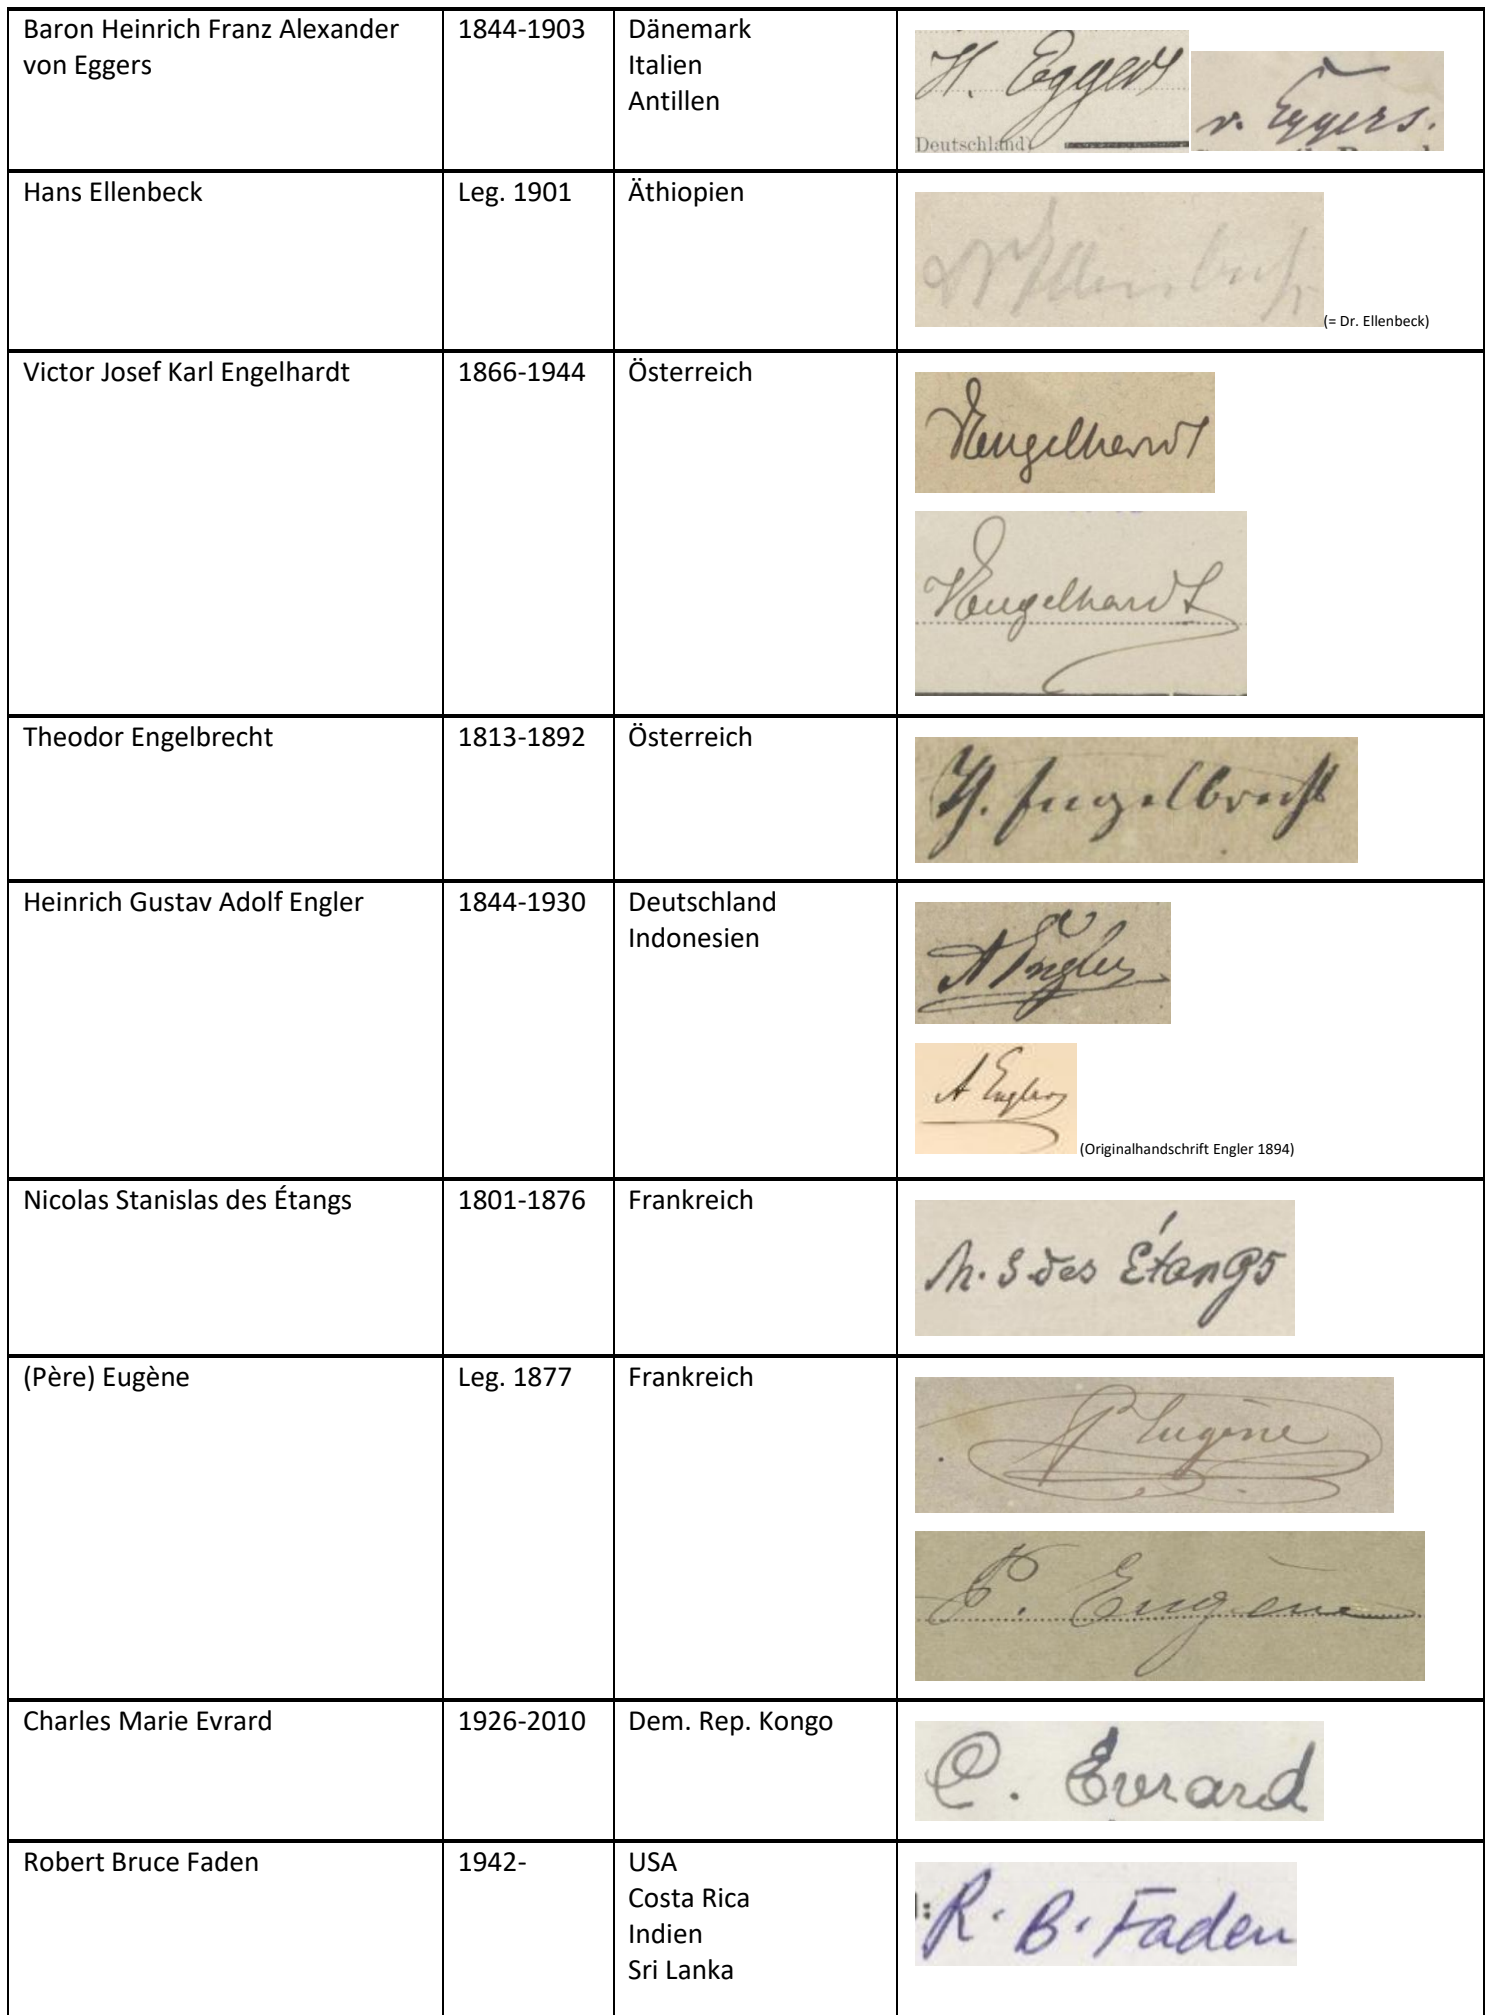 Baron Heinrich Franz Alexander
von Eggers
1844-1903
Dänemark
Italien
Antillen
H. Eggers
Deutschland)
v. Eggers.
Hans Ellenbeck
Leg. 1901
Äthiopien
Dr Ellenbeck
(= Dr. Ellenbeck)
Victor Josef Karl Engelhardt
1866-1944
Österreich
VEngelhardt
VEngelhardt
Theodor Engelbrecht
1813-1892
Österreich
Th. Engelbrecht
Heinrich Gustav Adolf Engler
1844-1930
Deutschland
Indonesien
A Engler
A Engler
(Originalhandschrift Engler 1894)
Nicolas Stanislas des Étangs
1801-1876
Frankreich
N. S. des Étangs
(Père) Eugène
Leg. 1877
Frankreich
P Eugène
P. Eugène
Charles Marie Evrard
1926-2010
Dem. Rep. Kongo
C. Evrard
Robert Bruce Faden
1942-
USA
Costa Rica
Indien
Sri Lanka
R. B. Faden